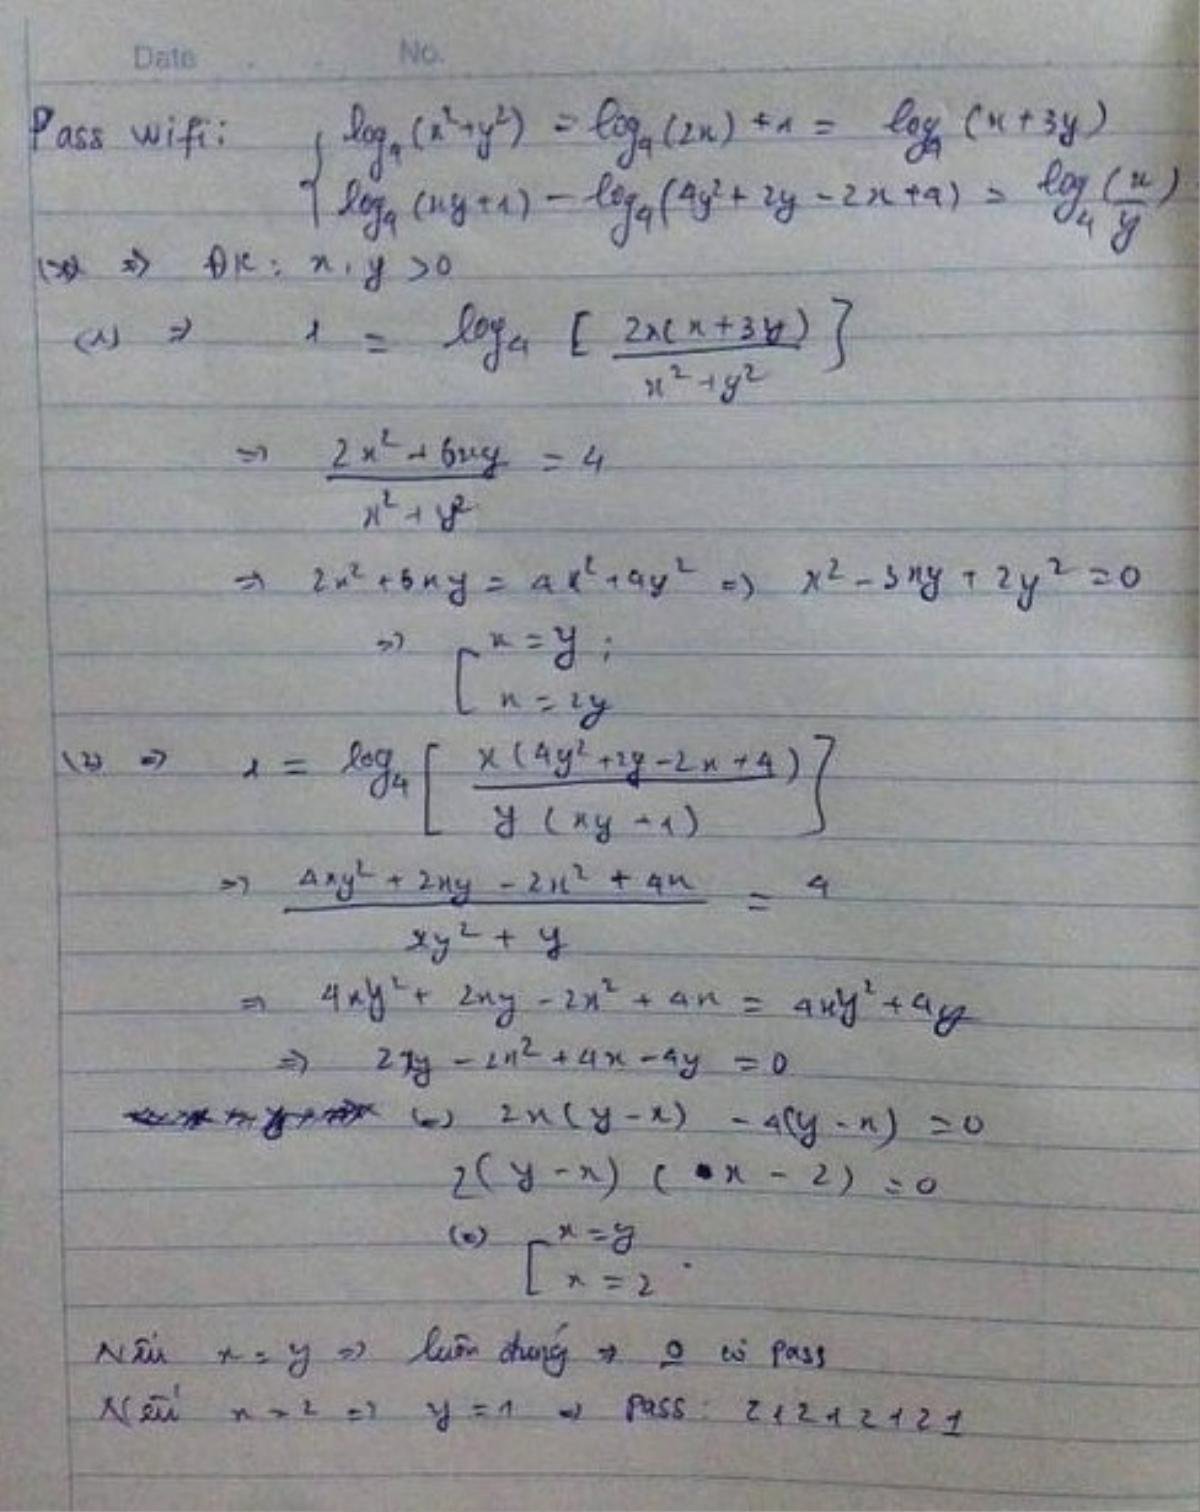 Date No.
Pass wifi: { log₄(x²+y²) = log₄(2x) + 1 = log₄(x+3y)
log₄(xy+1) - log₄(4y²+2y-2x+4) = log₄(x/y)
=> ĐK: x, y >0
(1) => 1 = log₄ [ 2x(x+3y) / x²+y² ]
=> 2x²+6xy / x²+y² = 4
=> 2x²+6xy = 4x²+4y² => x²-3xy+2y²=0
=> [ x = y ;
x = 2y
(2) => 1 = log₄ [ x(4y²+2y-2x+4) / y(xy+1) ]
=> 4xy²+2xy-2x²+4x / xy²+y = 4
=> 4xy²+2xy-2x²+4x = 4xy²+4y
=> 2xy-2x²+4x-4y = 0
(=) 2x(y-x) - 4(y-x) = 0
2(y-x)(x-2) = 0
(=) [ x = y
x = 2
Nếu x = y => luôn đúng => 0 có pass
Nếu x = 2 => y = 1 => pass: 21212121